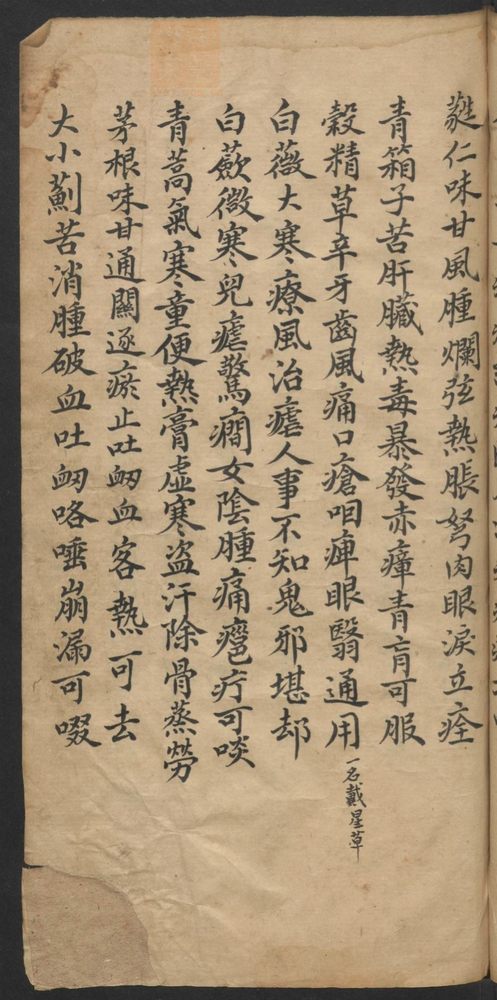 蕤仁味甘風腫爛弦熱脹弩肉眼淚立痊
青箱子苦肝臟熱毒暴發赤瘴青肓可服
穀精草辛牙齒風痛口瘡咽痺眼翳通用一名戴星草
白薇大寒療風治瘧人事不知鬼邪堪却
白蘞微寒兒瘧驚癇女陰腫痛癰疔可啖
青蒿氣寒童便熱膏虛寒盜汗除骨蒸勞
茅根味甘通關逐瘀止吐衂血客熱可去
大小薊苦消腫破血吐衂咯唾崩漏可啜